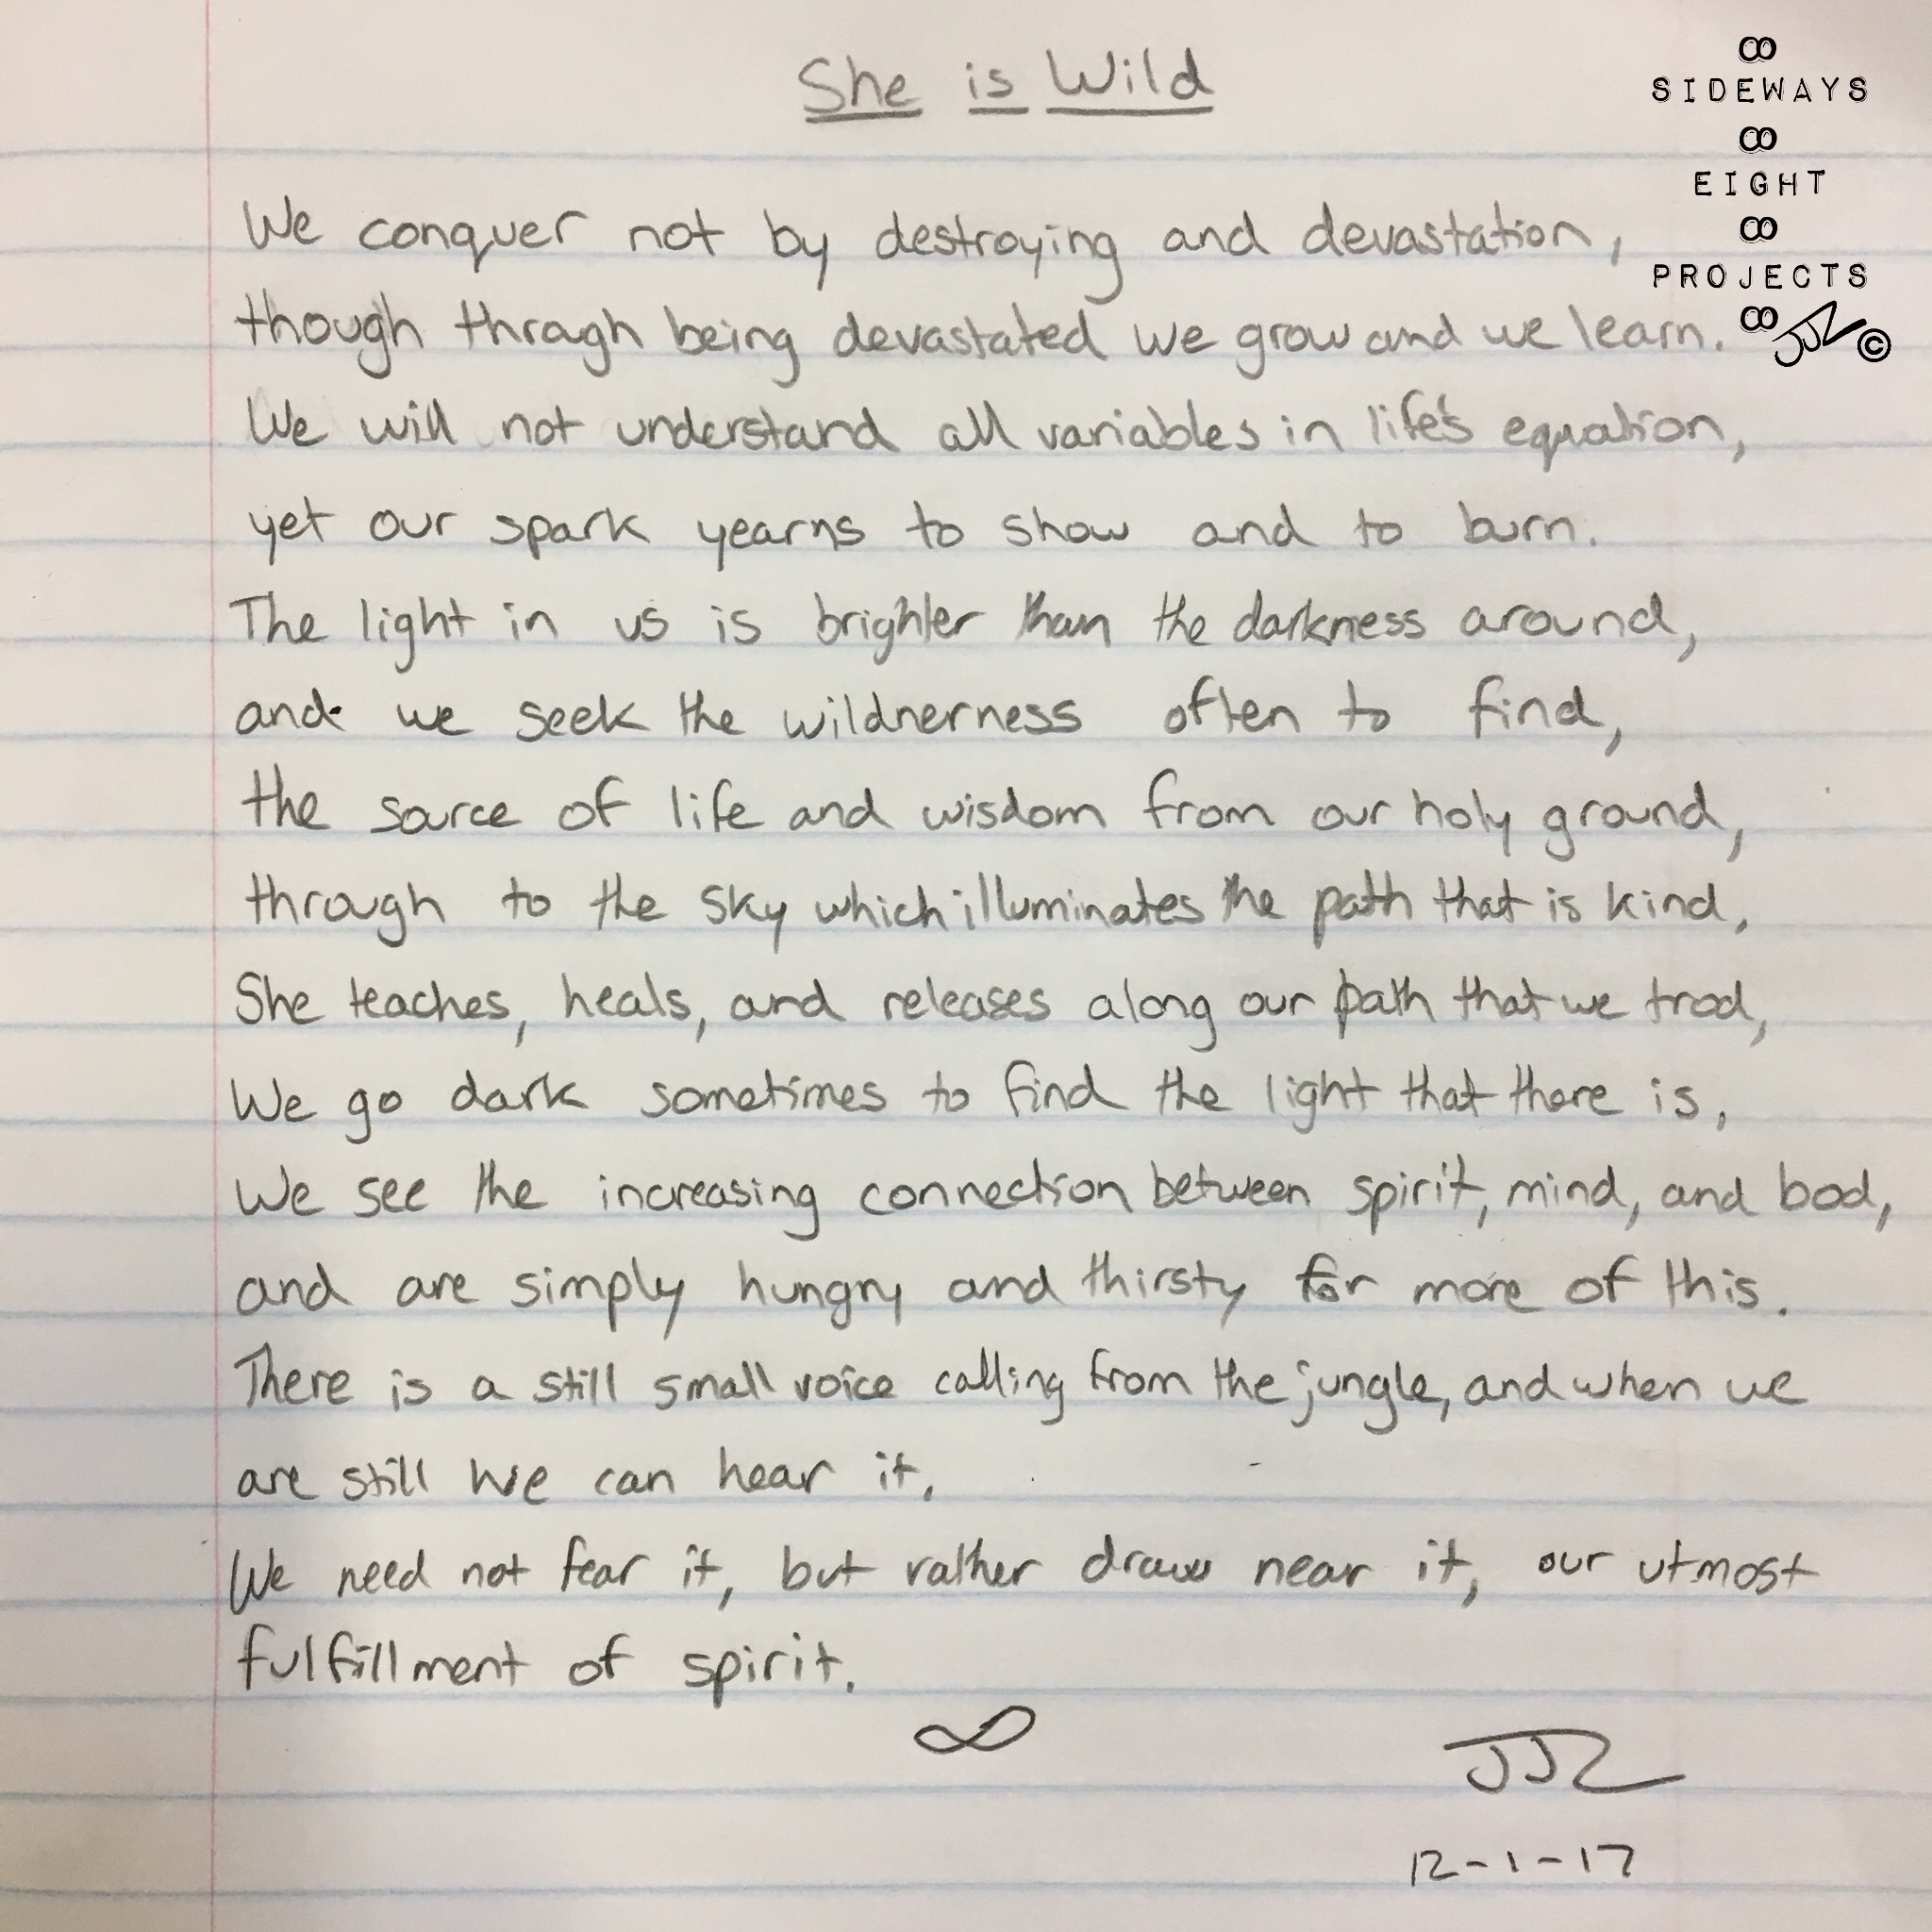 She is Wild
∞
SIDEWAYS
∞
EIGHT
∞
PROJECTS
∞ JJZ ©
We conquer not by destroying and devastation,
though through being devastated we grow and we learn.
We will not understand all variables in life's equation,
yet our spark yearns to show and to burn.
The light in us is brighter than the darkness around,
and we seek the wildnerness often to find,
the source of life and wisdom from our holy ground,
through to the sky which illuminates the path that is kind,
She teaches, heals, and releases along our path that we trod,
We go dark sometimes to find the light that there is,
We see the increasing connection between spirit, mind, and bod,
and are simply hungry and thirsty for more of this.
There is a still small voice calling from the jungle, and when we
are still we can hear it,
We need not fear it, but rather draw near it, our utmost
fulfillment of spirit.
∞
JJZ
12-1-17